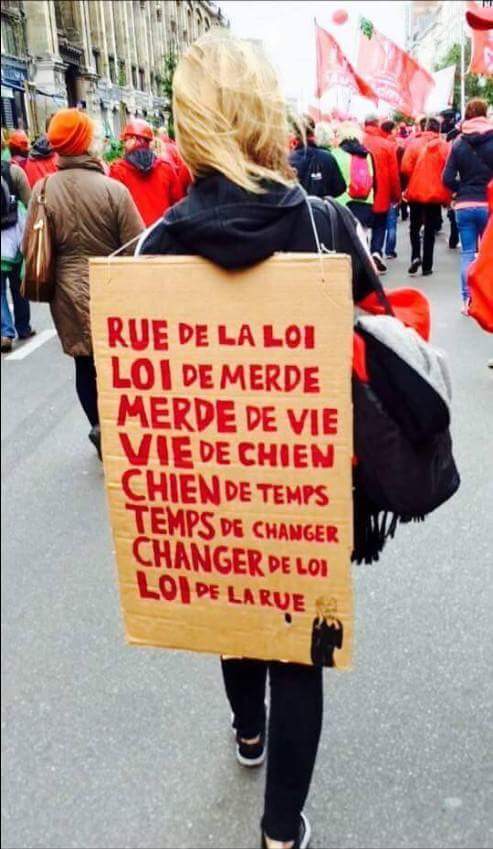 RUE DE LA LOI
LOI DE MERDE
MERDE DE VIE
VIE DE CHIEN
CHIEN DE TEMPS
TEMPS DE CHANGER
CHANGER DE LOI
LOI DE LA RUE